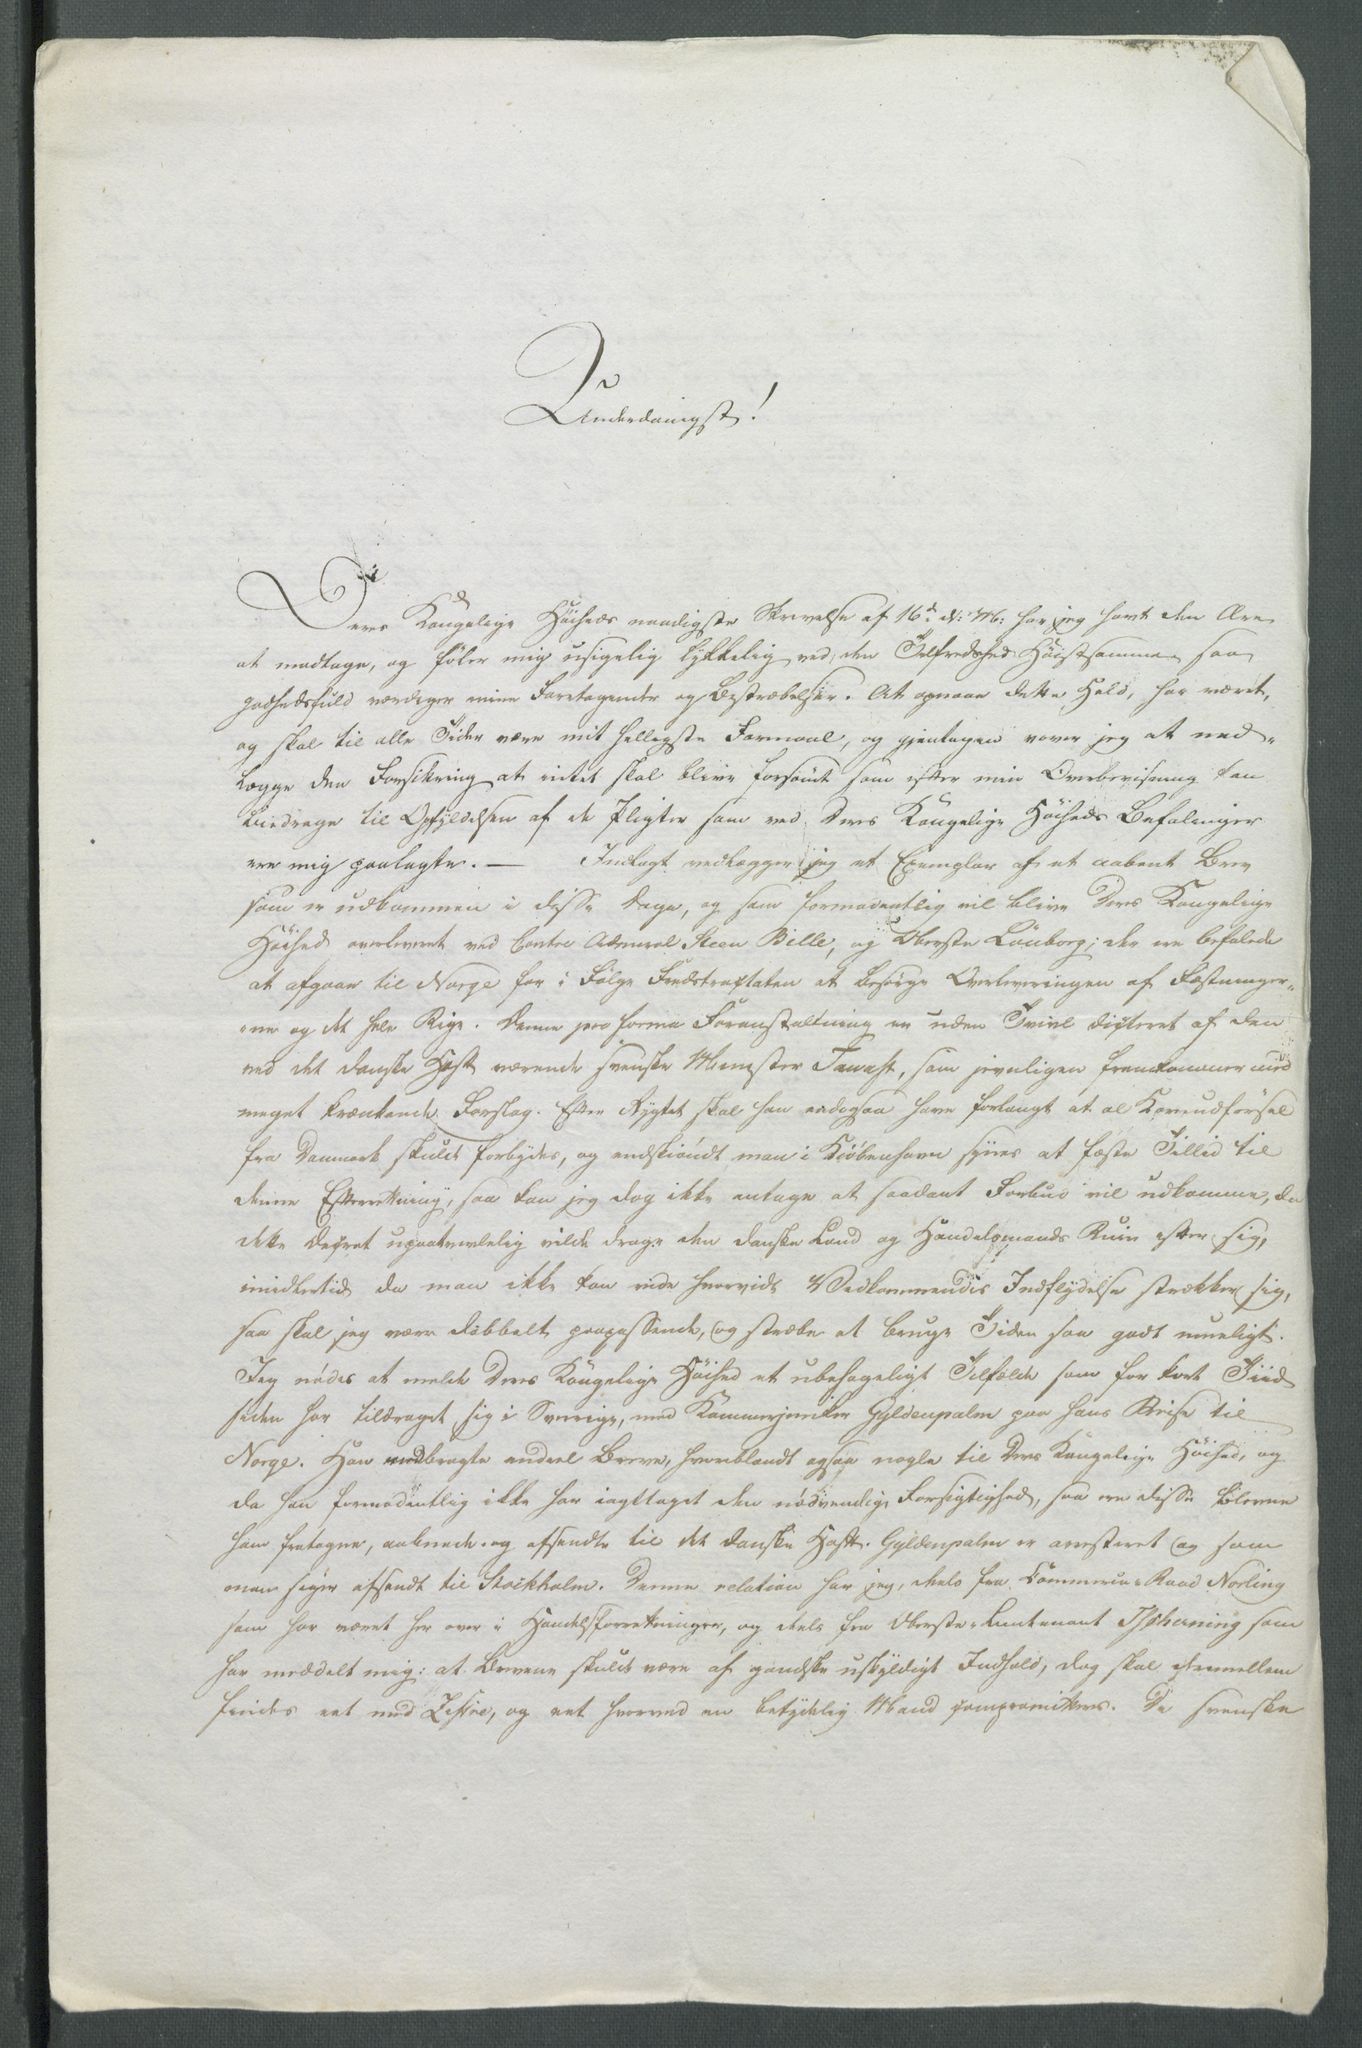 Underdanigst!
Deres Kongelige Høiheds naadigste Skrivelse af 16d. d: M: har jeg havt den Ære
at modtage, og føler mig usigelig lykkelig ved, den Tilfredshed Høistsamme saa
godhedsfuld værdiger mine Foretagender og Bestræbelser. At opnaae dette Held, har været,
og skal til alle Tider være mit helligste Formaal, og gjentagen vover jeg at ned-
lægge den Forsikring at intet skal blive forsømt som efter min Overbeviisning kan
bidrage til Opfyldelsen af de Pligter som ved Deres Kongelige Høiheds Befalinger
ere mig paalagte. — Indlagt vedlægger jeg et Exemplar af et aabent Brev
som er udkommen i disse Dage, og som formodentlig vil blive Deres Kongelige
Høihed overleveret ved Contre Admiral Steen Bille, og Oberste Lönborg; der ere befalede
at afgaae til Norge for i Følge Fredstractaten at besørge Overleveringen af Fæstninger-
ne og det hele Rige. Denne pro forma Foranstaltning er uden Tvivl dicteret af den
ved det danske Hoff værende svenske Minister Tawast, som jevnligen fremkommer med
meget krænkende Forslag. Efter Rygtet skal han endogsaa have forlangt at al Kornudførsel
fra Danmark skulde forbydes, og endskiøndt man i Kiöbenhavn synes at fæste Tillid til
denne Efterretning, saa kan jeg dog ikke antage at saadant Forbud vil udkomme, da
dette Decret upaatvivlelig vilde drage den danske Land og Handelsmands Ruin efter sig,
imidlertid da man ikke kan vide hvorvidt Vedkommendes Indflydelse strækker sig,
saa skal jeg være dobbelt paapassende, og stræbe at bruge Tiden saa godt mueligt.
Jeg nødes at melde Deres Kongelige Høihed et ubehageligt Tilfælde som for kort Tiid
siden har tildraget sig i Sverrige, med Kammerjunker Gyldenpalm paa hans Reise til
Norge. Han medbragte endeel Breve, hvoriblandt ogsaa nogle til Deres Kongelige Høihed, og
da han formodentlig ikke har iagttaget den nødvendige Forsigtighed, saa ere disse blevne
ham fratagne, aabnede og afsendte til det danske Hoff. Gyldenpalm er arresteret og som
man siger afsendt til Stockholm. Denne relation har jeg, deels fra Commerce-Raad Norling
som har været her over i Handelsforretninger, og deels fra Oberste-Lieutenant Tscherning som
har meddelt mig: at Brevene skulde være af gandske uskyldigt Indhold, dog skal derimellem
findes eet med Zifre, og eet hvorved en betydelig Mand compromitteres. De svenske